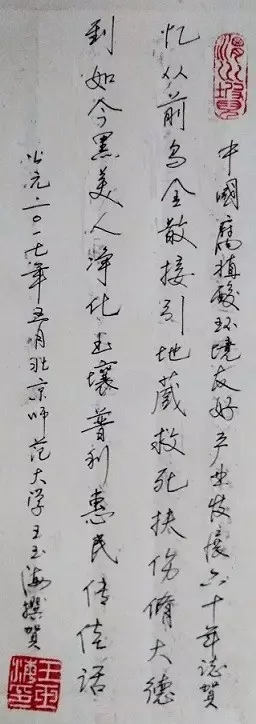 中國腐植酸环境友好产业发展六十年誌贺
忆从前乌金散接引地藏救死扶伤脩大德
到如今黑美人净化土壤普利惠民传佳话
公元二〇一七年五月北京师范大学王玉海撰贺
王玉海印